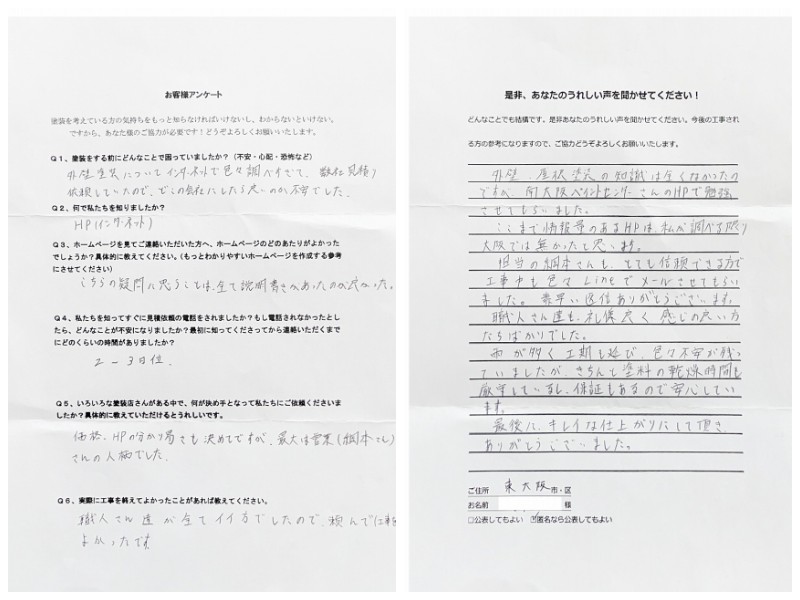 お客様アンケート
塗装を考えている方の気持ちをもっと知らなければいけないし、わからないといけない。
ですから、あなた様のご協力が必要です！どうぞよろしくお願いいたします。
Q1、塗装をする前にどんなことで困っていましたか？（不安・心配・恐怖など）
外壁塗装についてインターネットで色々調べすぎて、数社見積り
依頼していたので、どこの会社にしたら良いのか不安でした。
Q2、何で私たちを知りましたか？
HP(インターネット)
Q3、ホームページを見てご連絡いただいた方へ、ホームページのどのあたりがよかった
でしょうか？具体的に教えてください。（もっとわかりやすいホームページを作成する参考
にさせてください）
こちらの疑問に思うことは、全て説明書きがあったのが良かった。
Q4、私たちを知ってすぐに見積依頼の電話をされましたか？もし電話されなかったとし
たら、どんなことが不安になりましたか？最初に知ってくださってから連絡いただくまで
にどのくらいの時間がありましたか？
2－3日位.
Q5、いろいろな塗装店さんがある中で、何が決め手となって私たちにご依頼くださいま
したか？具体的に教えていただけるとうれしいです。
価格、HPの分かり易さも決めてですが、最大は営業(桐本さん)
さんの人柄でした.
Q6、実際に工事を終えてよかったことがあれば教えてください。
職人さん達が全てイイ方でしたので、頼んで
よかったです
是非、あなたのうれしい声を聞かせてください！
どんなことでも結構です。是非あなたのうれしい声を聞かせてください。今後の工事され
る方の参考になりますので、ご協力どうぞよろしくお願いいたします。
外壁、屋根塗装の知識は全くなかったの
ですが、南大阪ペイントセンターさんのHPで勉強
させてもらいました。
ここまで情報量のあるHPは、私が調べる限り
大阪では無かったと思います。
担当の桐本さんも、とても信頼できる方で
工事中も色々Lineでメールさせてもらい
ました。素早い返信ありがとうございます。
職人さん達も、礼儀良く感じの良い方
たちばかりでした。
雨が多く工期も延び、色々不安が残っ
ていましたが、きちんと塗料の乾燥時間も
厳守しているし、保証もあるので安心してい
ます。
最後に、キレイな仕上がりにして頂き、
ありがとうございました。
ご住所 東大阪 市・区
お名前 様
□公表してもよい ☑匿名なら公表してもよい